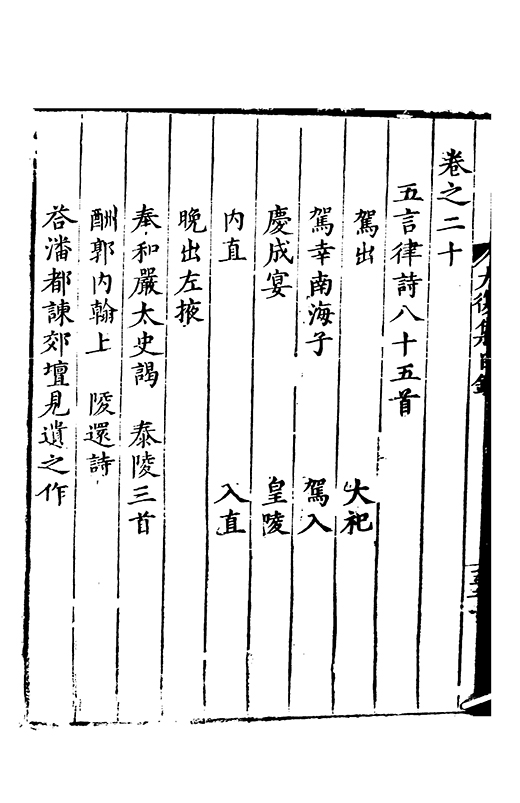 卷之二十
五言律詩八十五首
駕出　大祀
駕幸南海子　駕入
慶成宴　皇陵
內直　入直
晚出左掖
奉和嚴太史謁　泰陵三首
酬郭內翰上　陵還詩
荅潘都諫郊壇見遺之作
大復集目錄